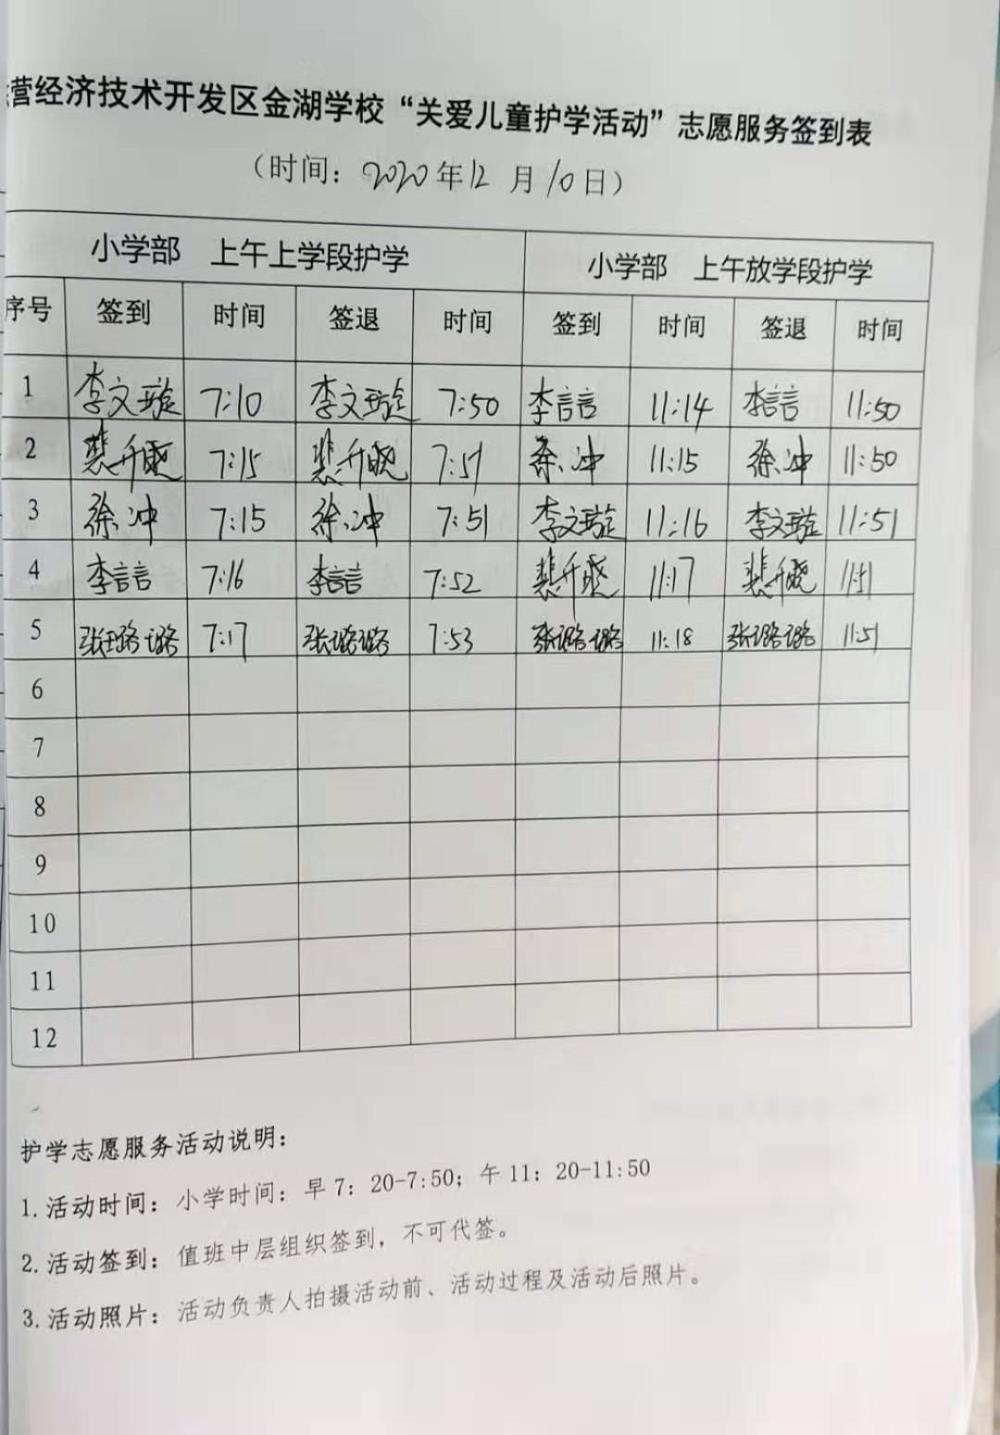 营经济技术开发区金湖学校“关爱儿童护学活动”志愿服务签到表
（时间：2020年12月10日）
小学部 上午上学段护学 小学部 上午放学段护学
序号 签到 时间 签退 时间 签到 时间 签退 时间
1 李文璇 7:10 李文璇 7:50 李言言 11:14 李言言 11:50
2 裴升晓 7:15 裴升晓 7:51 徐冲 11:15 徐冲 11:50
3 徐冲 7:15 徐冲 7:51 李文璇 11:16 李文璇 11:51
4 李言言 7:16 李言言 7:52 裴升晓 11:17 裴升晓 11:51
5 张璐璐 7:17 张璐璐 7:53 张璐璐 11:18 张璐璐 11:51
6
7
8
9
10
11
12
护学志愿服务活动说明：
1.活动时间：小学时间：早7：20-7:50；午11：20-11:50
2.活动签到：值班中层组织签到，不可代签。
3.活动照片：活动负责人拍摄活动前、活动过程及活动后照片。